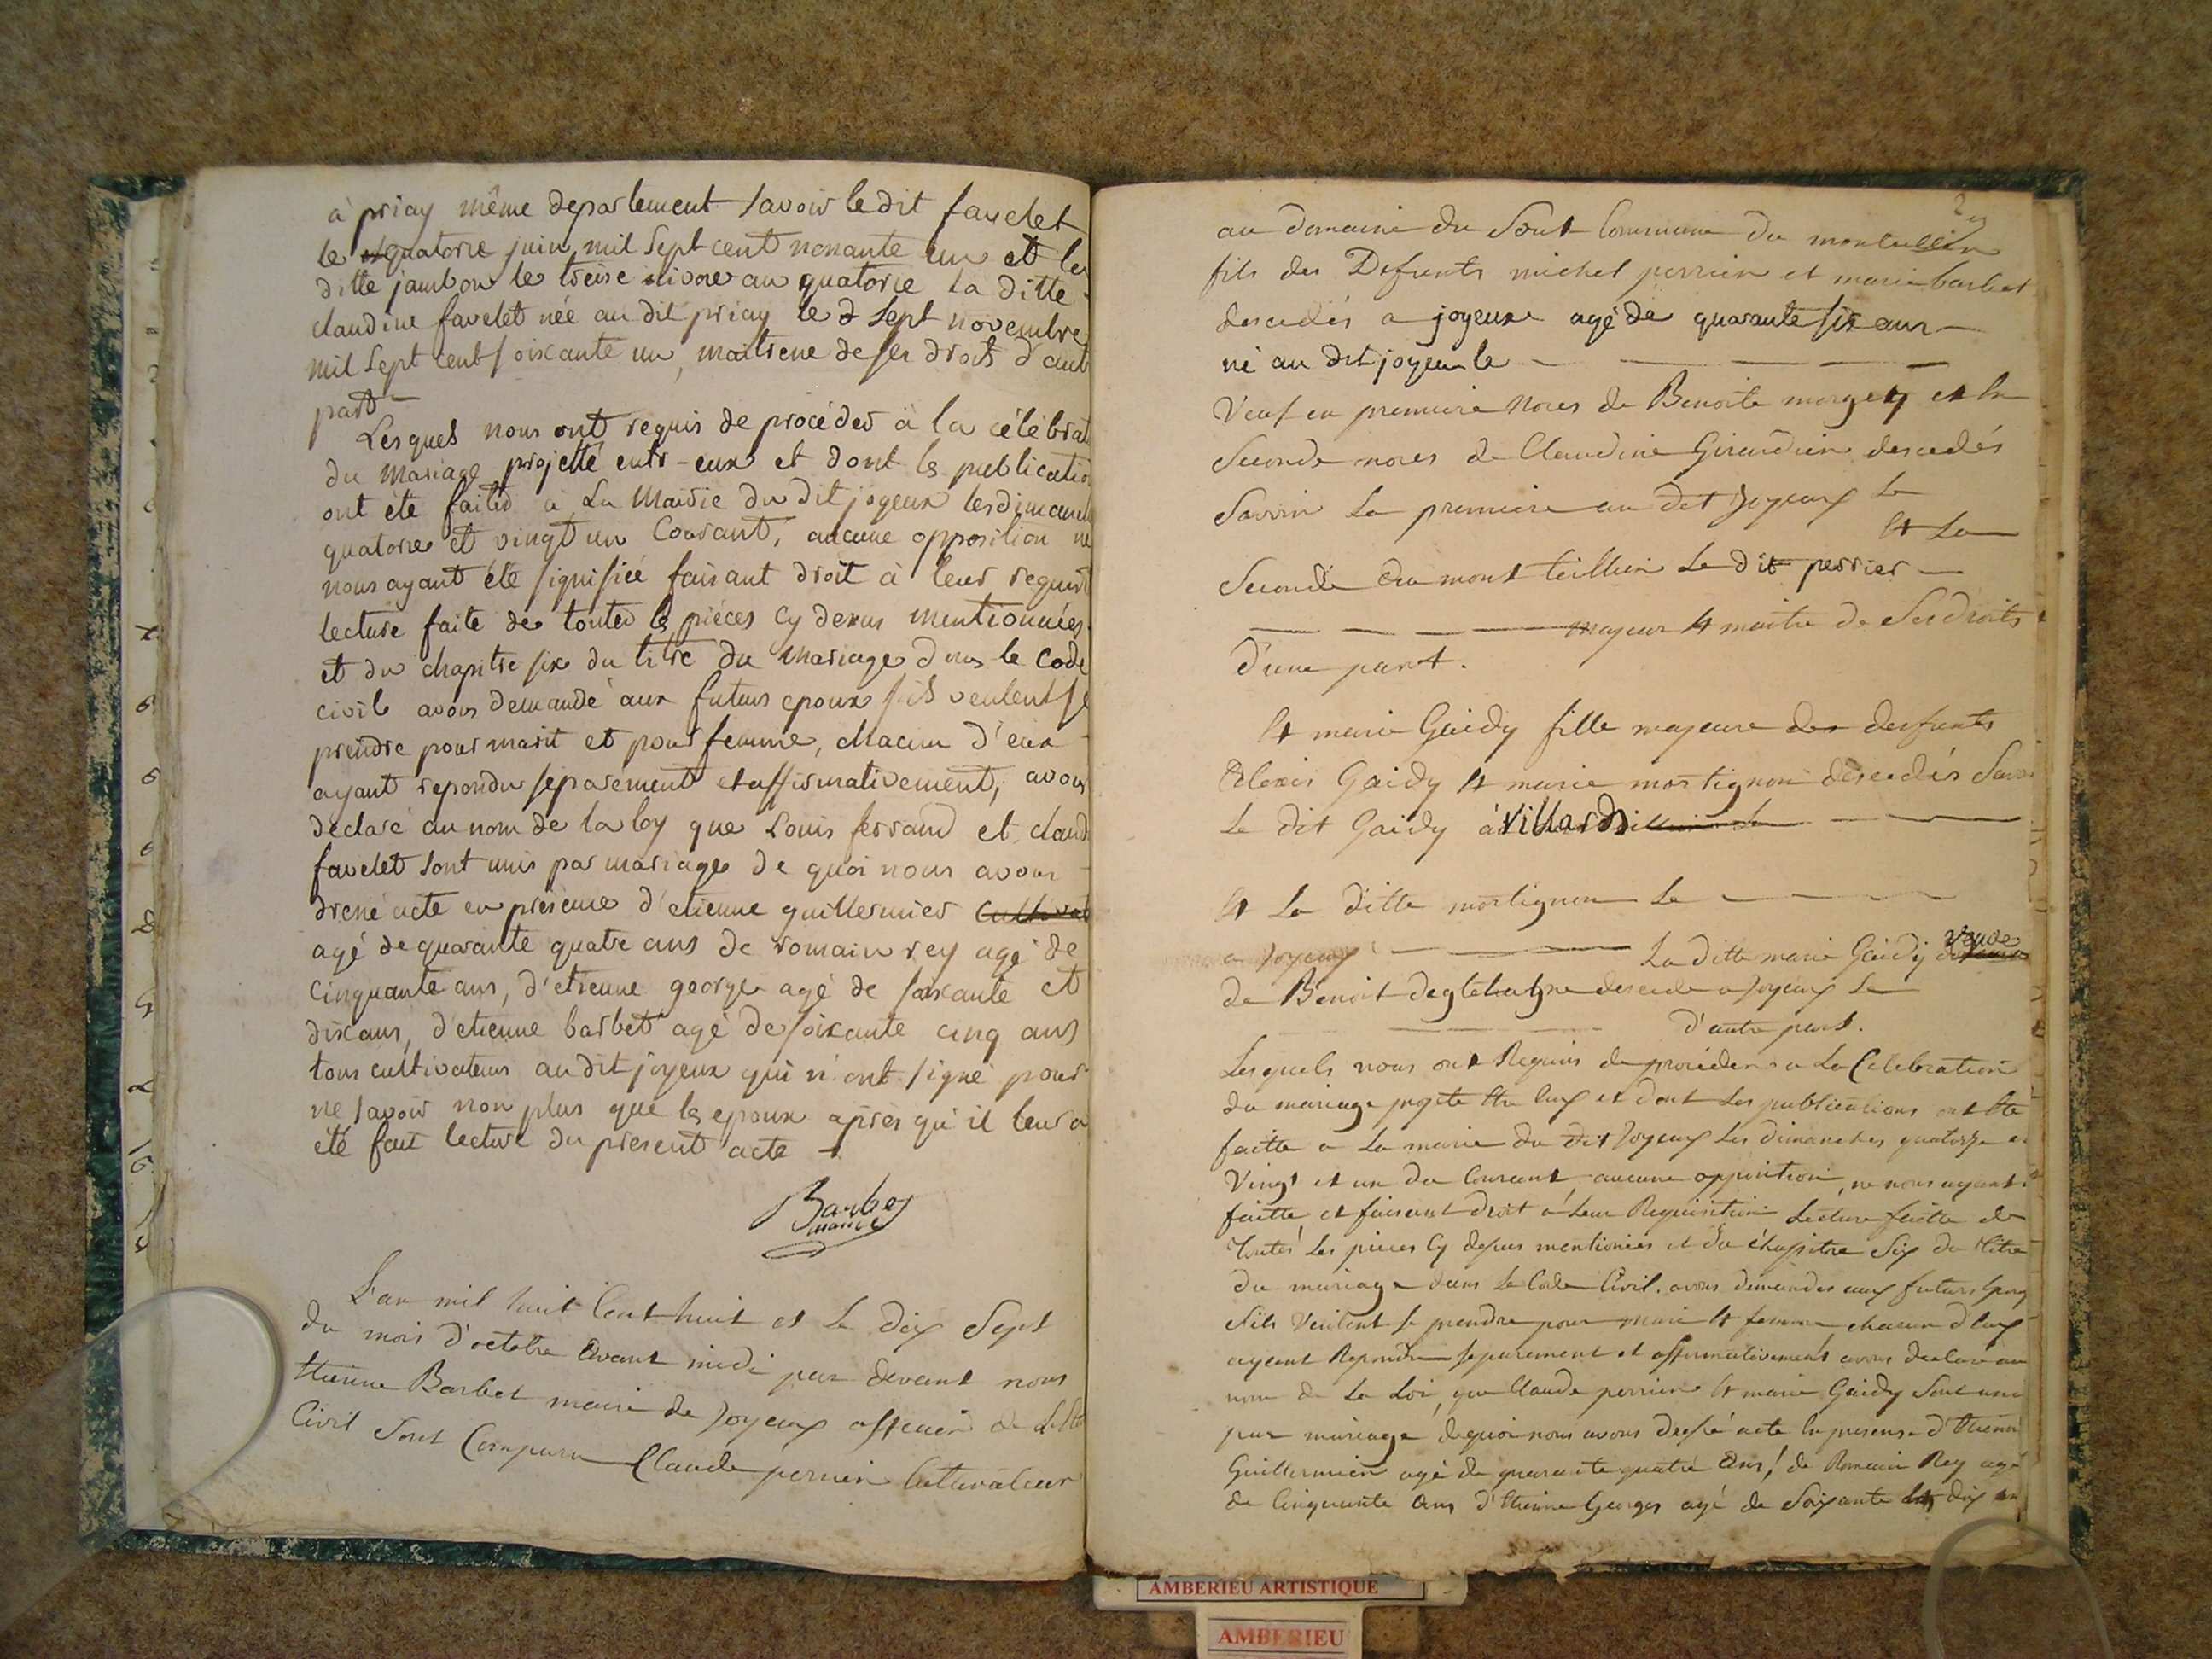 à priay même departement savoir ledit favelet
le quatorze juin mil sept cent nonante un et la
ditte jambon le treise nivose an quatorze la ditte
claudine favelet née au dit priay le sept novembre
mil sept cent soixante un, maitresse de ses droits d'aut
part
Lesquels nous ont requis de procéder à la célébrat
du mariage projetté entr-eux et dont les publicatio
ont été faites à la Mairie du dit joyeux les dimanch
quatorze et vingt un Courant, aucune opposition ne
nous ayant été signifiée faisant droit à leur requis
lecture faite de toutes les pièces cy dessus mentionnées
et du chapitre six du titre du mariage dans le code
civil avons demandé aux futurs epoux s'ils veulent se
prendre pour marit et pour femme, chacun d'eux
ayant repondu separement et affirmativement, avons
declaré au nom de la loy que Louis ferrand et claud
favelet sont unis par mariage de quoi nous avons
dressé acte en présence d'etienne guillermier Cultivat
agé de quarante quatre ans de romain rey agé de
cinquante ans, d'etienne george agé de soixante et
dix ans, d'etienne barbet agé de soixante cinq ans
tous cultivateurs au dit joyeux qui n'ont signé pour
ne savoir non plus que les epoux après qu'il leur a
été fait lecture du present acte
Barbet
maire
L'an mil huit Cent huit et le dix sept
du mois d'octobre avant midi par devant nous
Etienne Barbet maire de Joyeux officier de L'Et
Civil sont Comparu Claude perrier Cultivateur
au domaine du Sout Commune du montellier
fils des Defunts michel perrier et marie barbet
descedés a joyeux agé de quarante six ans
né au dit joyeux le
Veuf en premiere noces de Benoite morgey et En
Seconde noces de Claudine Girardier descedés
Savoir La premiere au dit Joyeux Le
Et La
Seconde au montteillier Le dit perrier
majeur Et maitre de Ses droits
d'une part.
Et marie Gaidy fille majeure des desfunts
Alexis Gaidy Et marie mortignon descedés Savoir
Le dit Gaidy à Villards
Et La ditte mortignon Le
a Joyeux La ditte marie Gaidy Veuve
de Benoit descede a Joyeux Le
d'autre part.
Lesquels nous ont Requis de procéder a La Celebration
du mariage projete Entre Eux et dont Les publications ont Ete
faitte a La mairie du dit Joyeux Les dimanches quatorze et
Vingt et un du Courant, aucune opposition, ne nous ayant été
faitte et faisant droit à Leur Requisition Lecture faitte de
toutes Les pieces Cy desus mentionées et du chapitre Six du titre
du mariage dans Le Code Civil. avons demandes aux futurs Epoux
S'ils Veulent se prendre pour mari Et femme, chacun d'Eux
ayant Repondu separement et affirmativement avons declare au
nom de La Loi, que Claude perrier Et marie Gaidy Sont unis
par mariage de quoi nous avons dressé acte En presense d'Etienne
Guillermier agé de quarante quatre ans, de Romain Rey agé
de Cinquante ans d'Etienne Georges agé de Soixante Et dix ans
AMBERIEU ARTISTIQUE
AMBERIEU